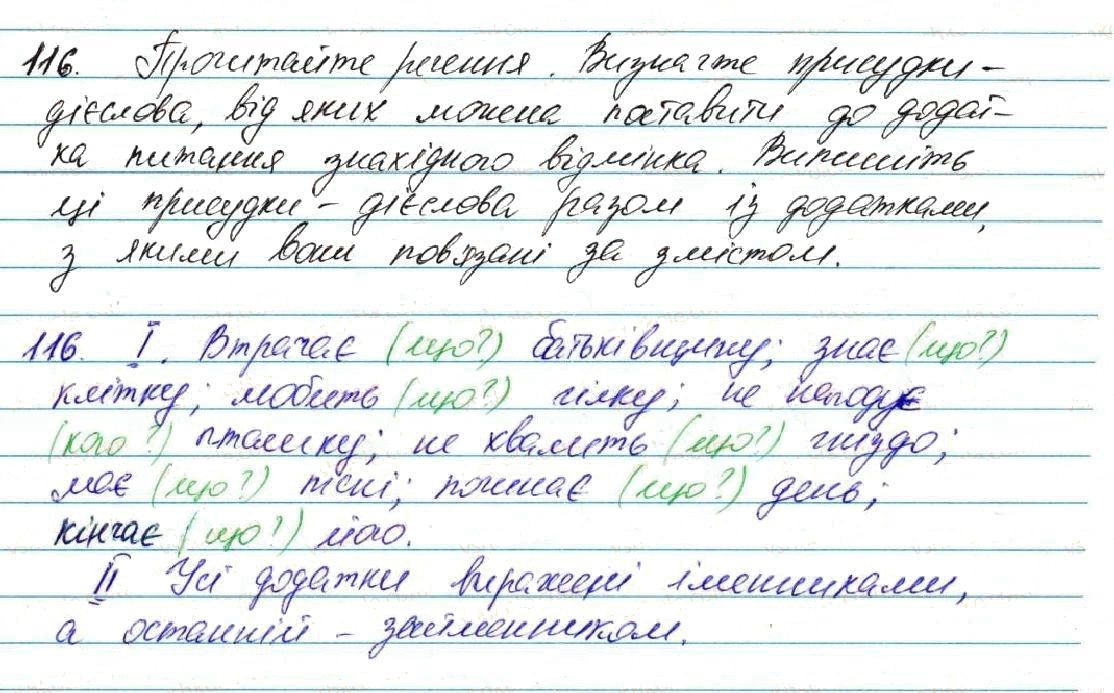 116. Прочитайте речення. Визначте присудки-
дієслова, від яких можна поставити до додат-
ка питання знахідного відмінка. Випишіть
ці присудки-дієслова разом із додатками,
з якими вони пов'язані за змістом.
116. I. Втрачає (що?) батьківщину; знає (що?)
клітку; любить (що?) гілку; не нагодує
(кого?) пташку; не хвалить (що?) гніздо;
має (що?) пісні; починає (що?) день;
кінчає (що?) його.
II Усі додатки виражені іменниками,
а останній – займенником.